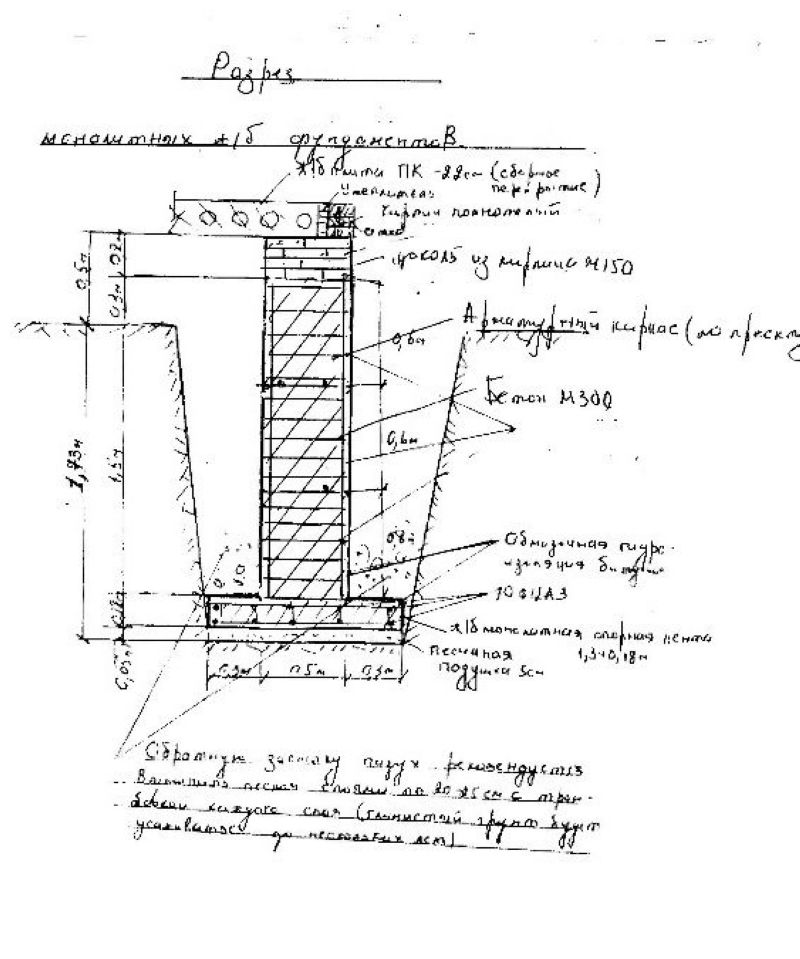 Разрез
монолитных ж/б фундаментов
ж/б плита ПК-22см (сборное
перекрытие)
утеплитель
кирпич полнотелый
цоколь из кирпича М150
0,5м
0,2
0,3м
Арматурный каркас (по
0,6м
Бетон М300
0,6м
1,73м
1,5м
0,8м
Обмазочная гидро-
изоляция
10Ф12А3
0,18
ж/б монолитная опорная лента
1,3×0,18м
0,05м
песчаная
подушка 5см
0,3м
0,5м
0,3м
Обратную засыпку пазух рекомендуется
выполнить песком слоями по 20 25см с трам-
бовкой каждого слоя (глинистый грунт будет
усаживаться до нескольких лет)